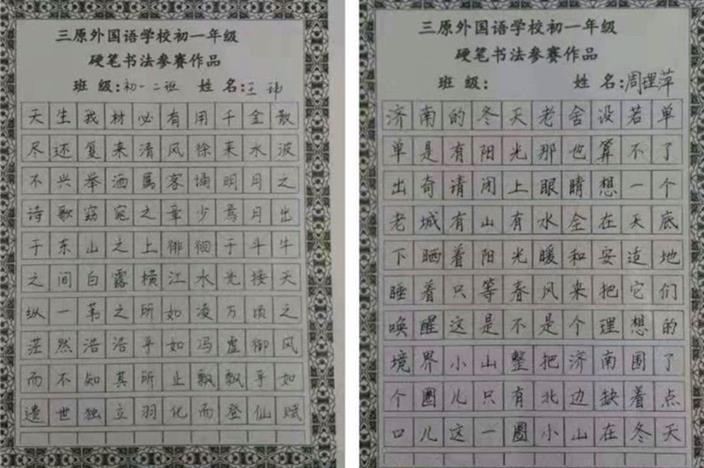 三原外国语学校初一年级
硬笔书法参赛作品
班 级:初一二班 姓 名:王玮
天生我材必有用千金散
尽还复来清风徐来水波
不兴举酒属客诵明月之
诗歌窈窕之章少焉月出
于东山之上徘徊于斗牛
之间白露横江水光接天
纵一苇之所如凌万顷之
茫然浩浩乎如冯虚御风
而不知其所止飘飘乎如
遗世独立羽化而登仙赋
三原外国语学校初一年级
硬笔书法参赛作品
班 级: 姓 名:周理萍
济南的冬天老舍设若单
单是有阳光那也算不了
出奇请闭上眼睛想一个
老城有山有水全在天底
下晒着阳光暖和安适地
睡着只等春风来把它们
唤醒这是不是个理想的
境界小山整把济南围了
个圈儿只有北边缺着点
口儿这一圈小山在冬天